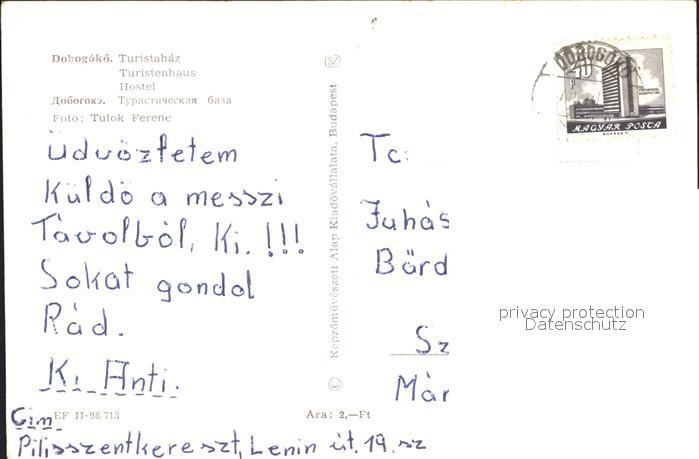 Dobogókő. Turistaház
Turistenhaus
Hostel
Добогокэ. Туристическая база
Foto: Tulok Ferenc
Üdvözletem
Küldö a messzi
Távolból, Ki. !!!
Sokat gondol
Rád.
K. Anti.
EF II-98,713
Cím
Pilisszentkereszt, Lenin út. 19. sz
Ára: 2,—Ft
Képzőművészeti Alap Kiadóvállalata, Budapest
Tc:
Juhás
Bárd
Sz
Már
DOBOGÓKŐ
40
MAGYAR POSTA
privacy protection
Datenschutz